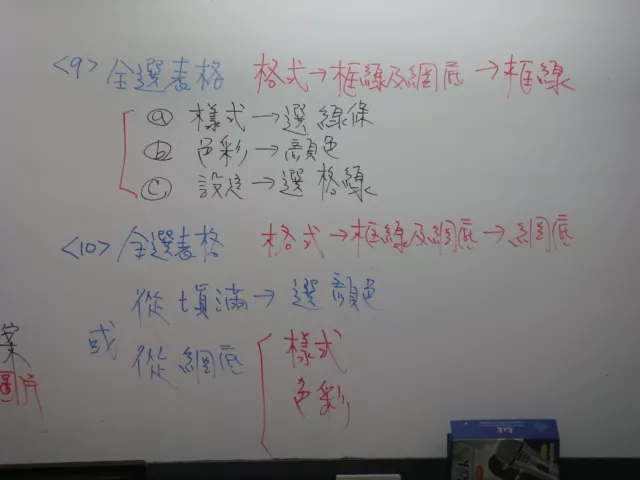 <9> 全選表格 格式→框線及網底→框線
ⓐ 樣式→選線條
ⓑ 色彩→顏色
ⓒ 設定→選格線
<10> 全選表格 格式→框線及網底→網底
從填滿→選顏色
或 從網底 樣式
色彩
案
圖片
k&k